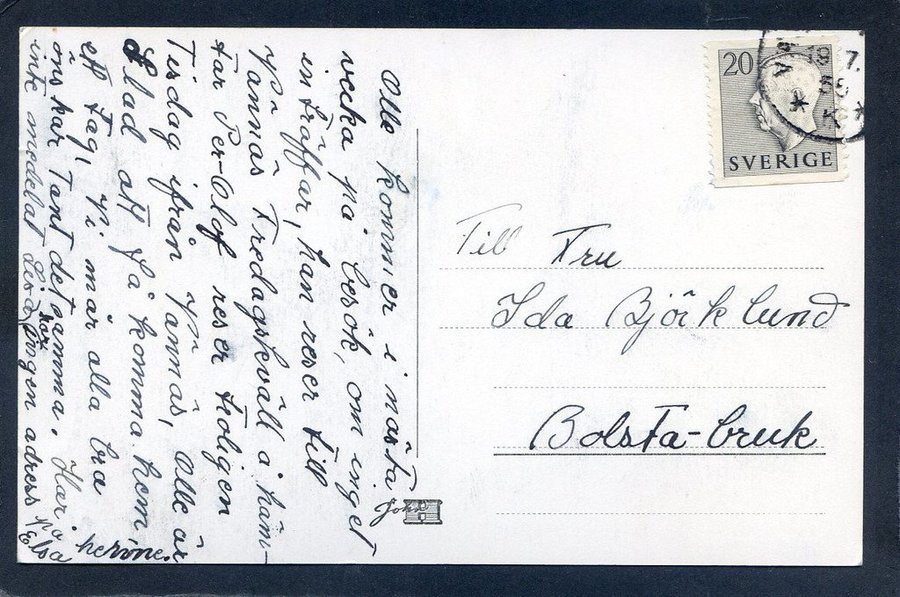 Olle kommer i nästa
vecka på besök, om inget
inträffar, han reser till
Vännäs Fredagskväll å häm-
tar Per-Olof reser troligen
Tisdag ifrån Vännäs, Olle är
Glad att få komma hem,
ett tag, Vi mår alla bra
önskar Tant detsamma. Har
inte medelat har ingen adress på
henne.
Elsa
20
SVERIGE
19 7.
Till Fru
Ida Björklund
Bolsta-bruk
John